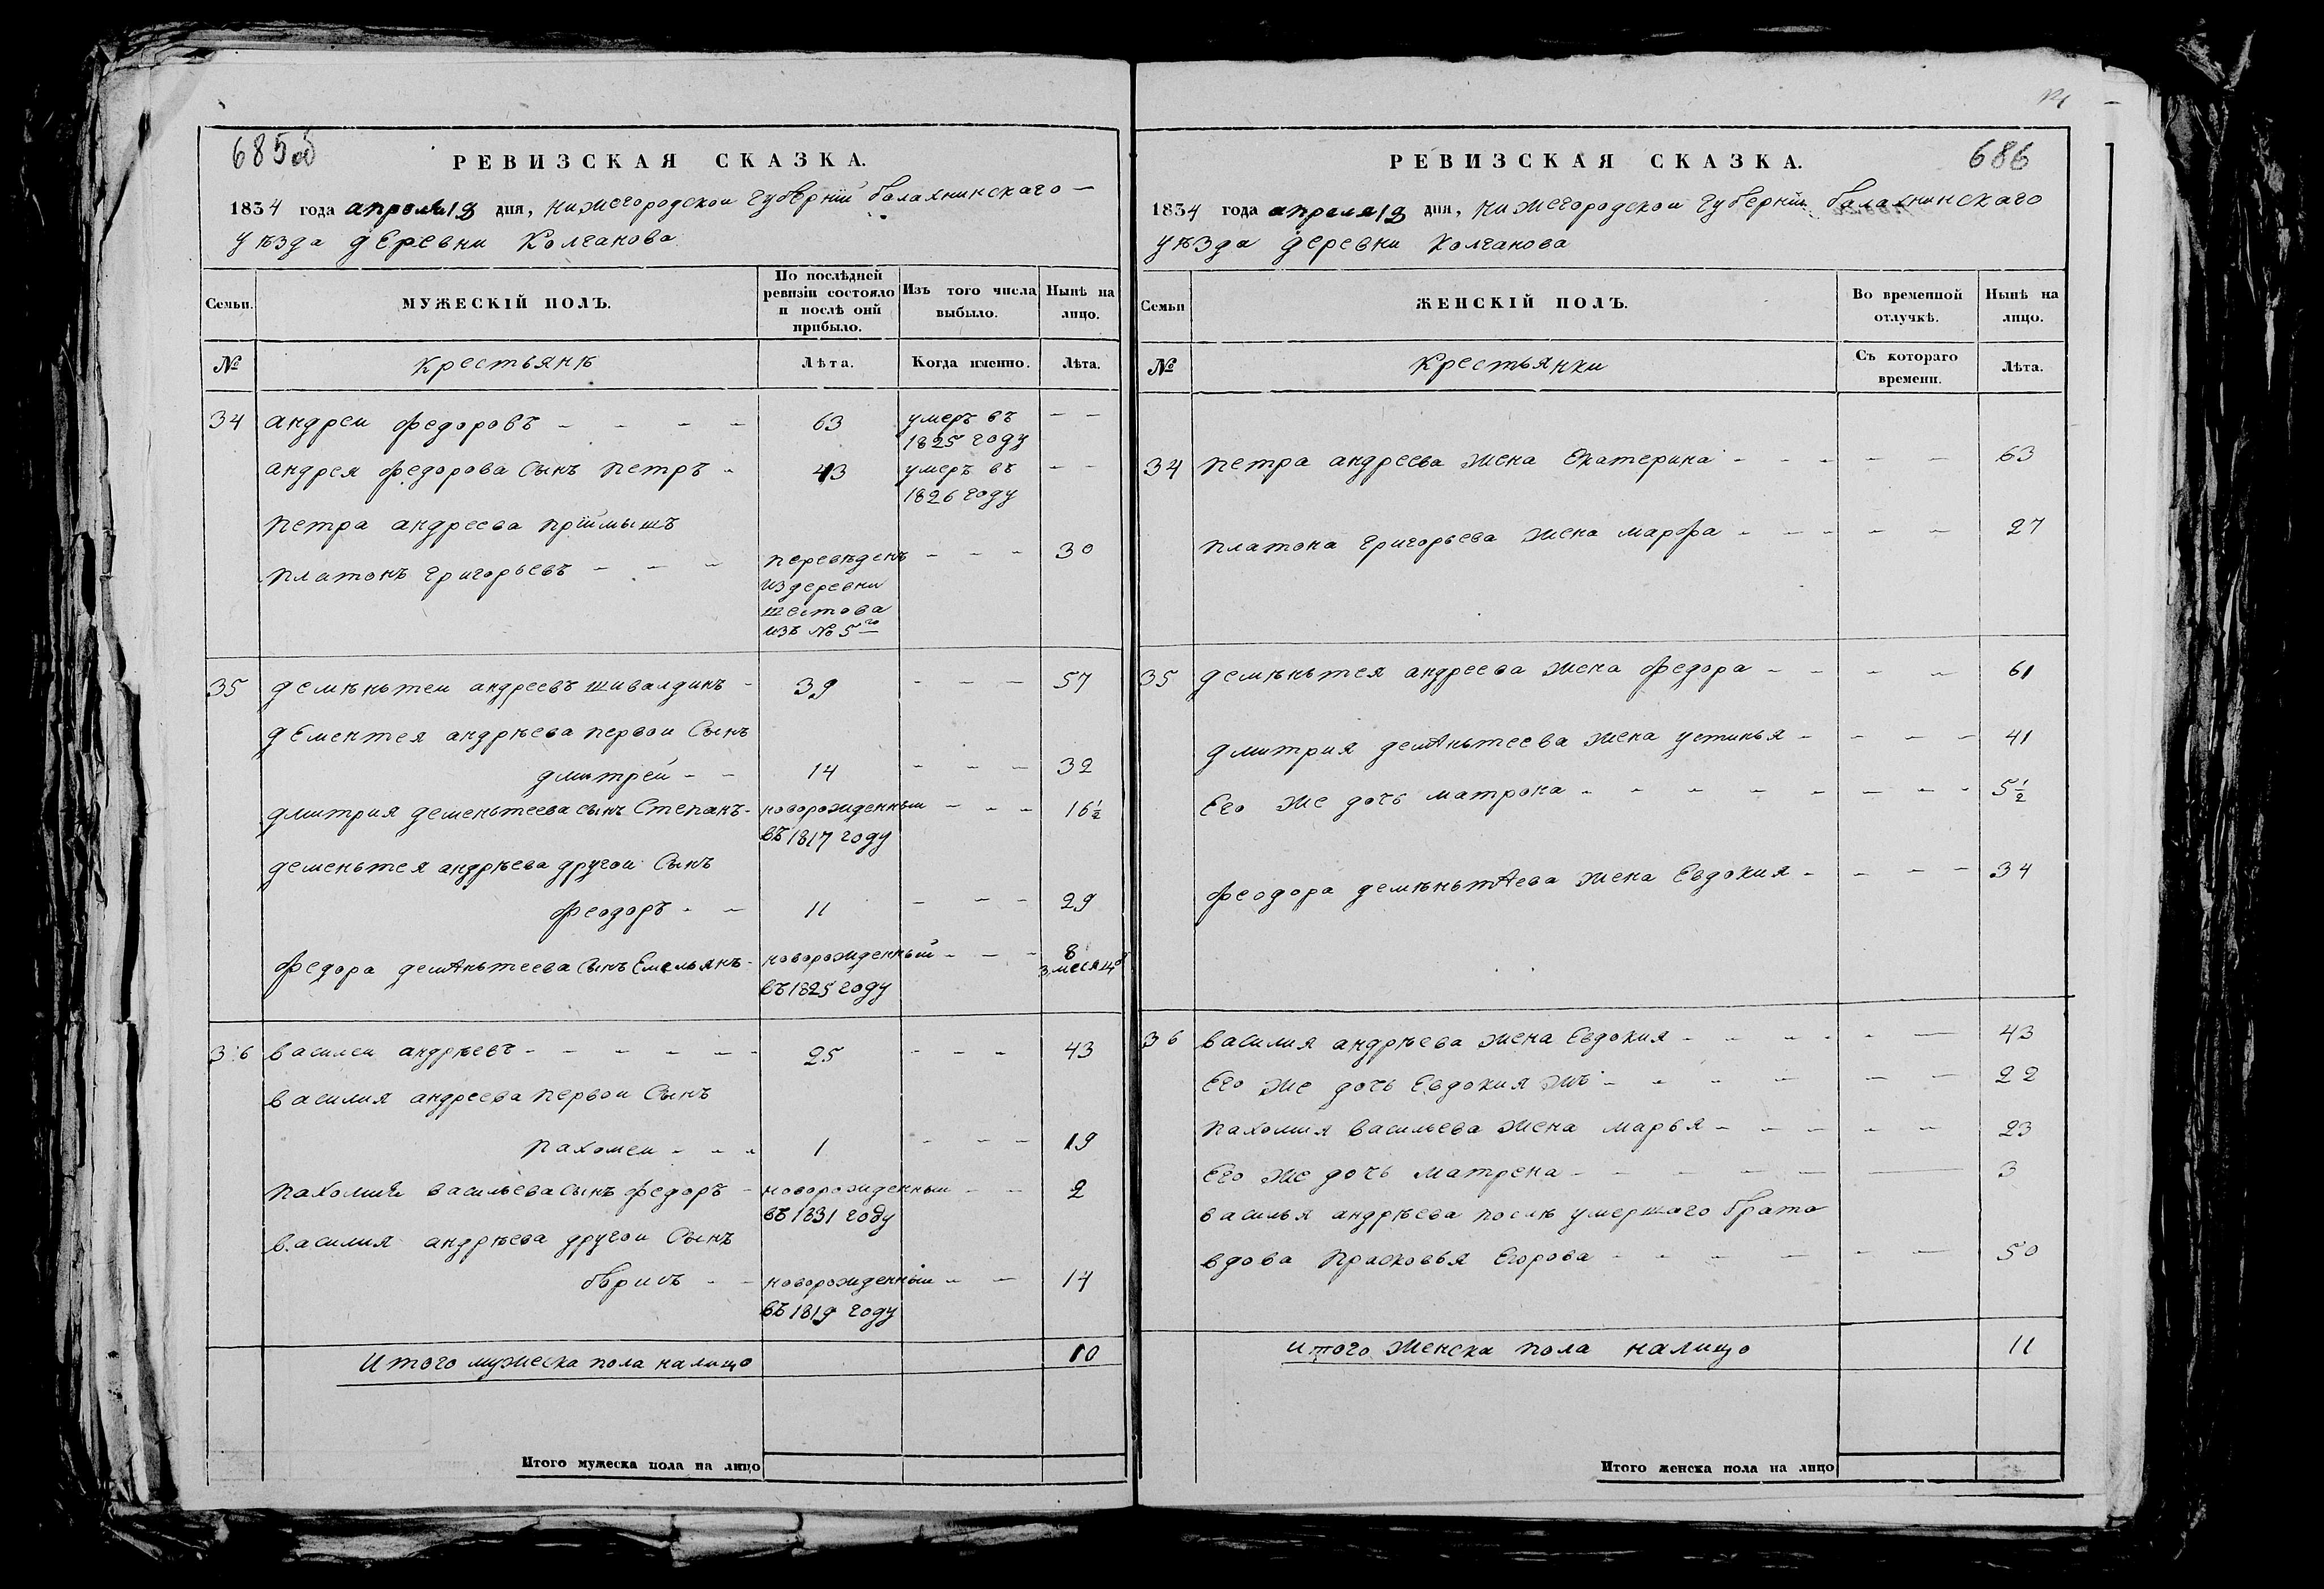 685об
РЕВИЗСКАЯ СКАЗКА.
1834 года апреля 19 дня, нижегородской губернии балахнинскаго
уѣзда деревни Колчанова
Семьи.
МУЖЕСКІЙ ПОЛЪ.
По послѣдней ревизіи состояло и послѣ оной прибыло.
Изъ того числа выбыло.
Нынѣ на лицо.
№
крестьянѣ
Лѣта.
Когда именно.
Лѣта.
34 андреи федоровъ - - - - 63 умеръ въ 1825 году - -
андрея федорова Сынъ петръ - 43 умеръ въ 1826 году - -
петра андреева прїимышъ
платонъ григорьевъ - - - переведенъ из деревни шестова изъ № 5го - - - 30
35 демѣньтеи андреевъ шивалдинъ - 39 - - - 57
дЕментея андрѣева первои Сынъ
дмитреи - - 14 - - - 32
дмитрия деменьтеева сынъ Степанъ - новорожденныи въ 1817 году - - - 16½
деменьтея андрѣева другои Сынъ
феодоръ - - 11 - - - 29
федора демѣньтеева Сынъ Емельянъ - новорожденный въ 1825 году - - - 8 3 месяцов
36 василеи андрѣевъ - - - - - - 25 - - - 43
василия андреева первои Сынъ
пахомеи - - - 1 - - - 19
пахомия васильева сынъ федоръ - новорожденныи въ 1831 году - - 2
василия андрѣева другои Сынъ
борисъ - - новорожденныи въ 1819 году - - 14
Итого мужеска пола налицо 10
Итого мужеска пола на лицо
686
РЕВИЗСКАЯ СКАЗКА.
1834 года апреля 19 дня, нижегородской губерніи балахнинскаго
уѣзда деревни Колчанова
Семьи
ЖЕНСКІЙ ПОЛЪ.
Во временной отлучкѣ.
Нынѣ на лицо.
№
крестьянки
Съ котораго времени.
Лѣта.
34 петра андреева жена Екатерина - - - - - 63
платона григорьева жена марфа - - - - - 27
35 демѣньтея андреева жена федора - - - - 61
дмитрия деменьтеева жена устинья - - - - 41
Его же дочь матрона - - - - - - - - 5½
феодора демѣньтеева жена Евдокия - - - - 34
36 василия андрѣева жена Евдокия - - - - - - 43
Его же дочь Евдокия жъ - - - - - - 22
пахомия васильева жена марья - - - - - 23
Его же дочь матрена - - - - - - 3
василья андрѣева послѣ умершаго брата
вдова прасковья Егорова - - - - - - 50
итого женска пола налицо 11
Итого женска пола на лицо